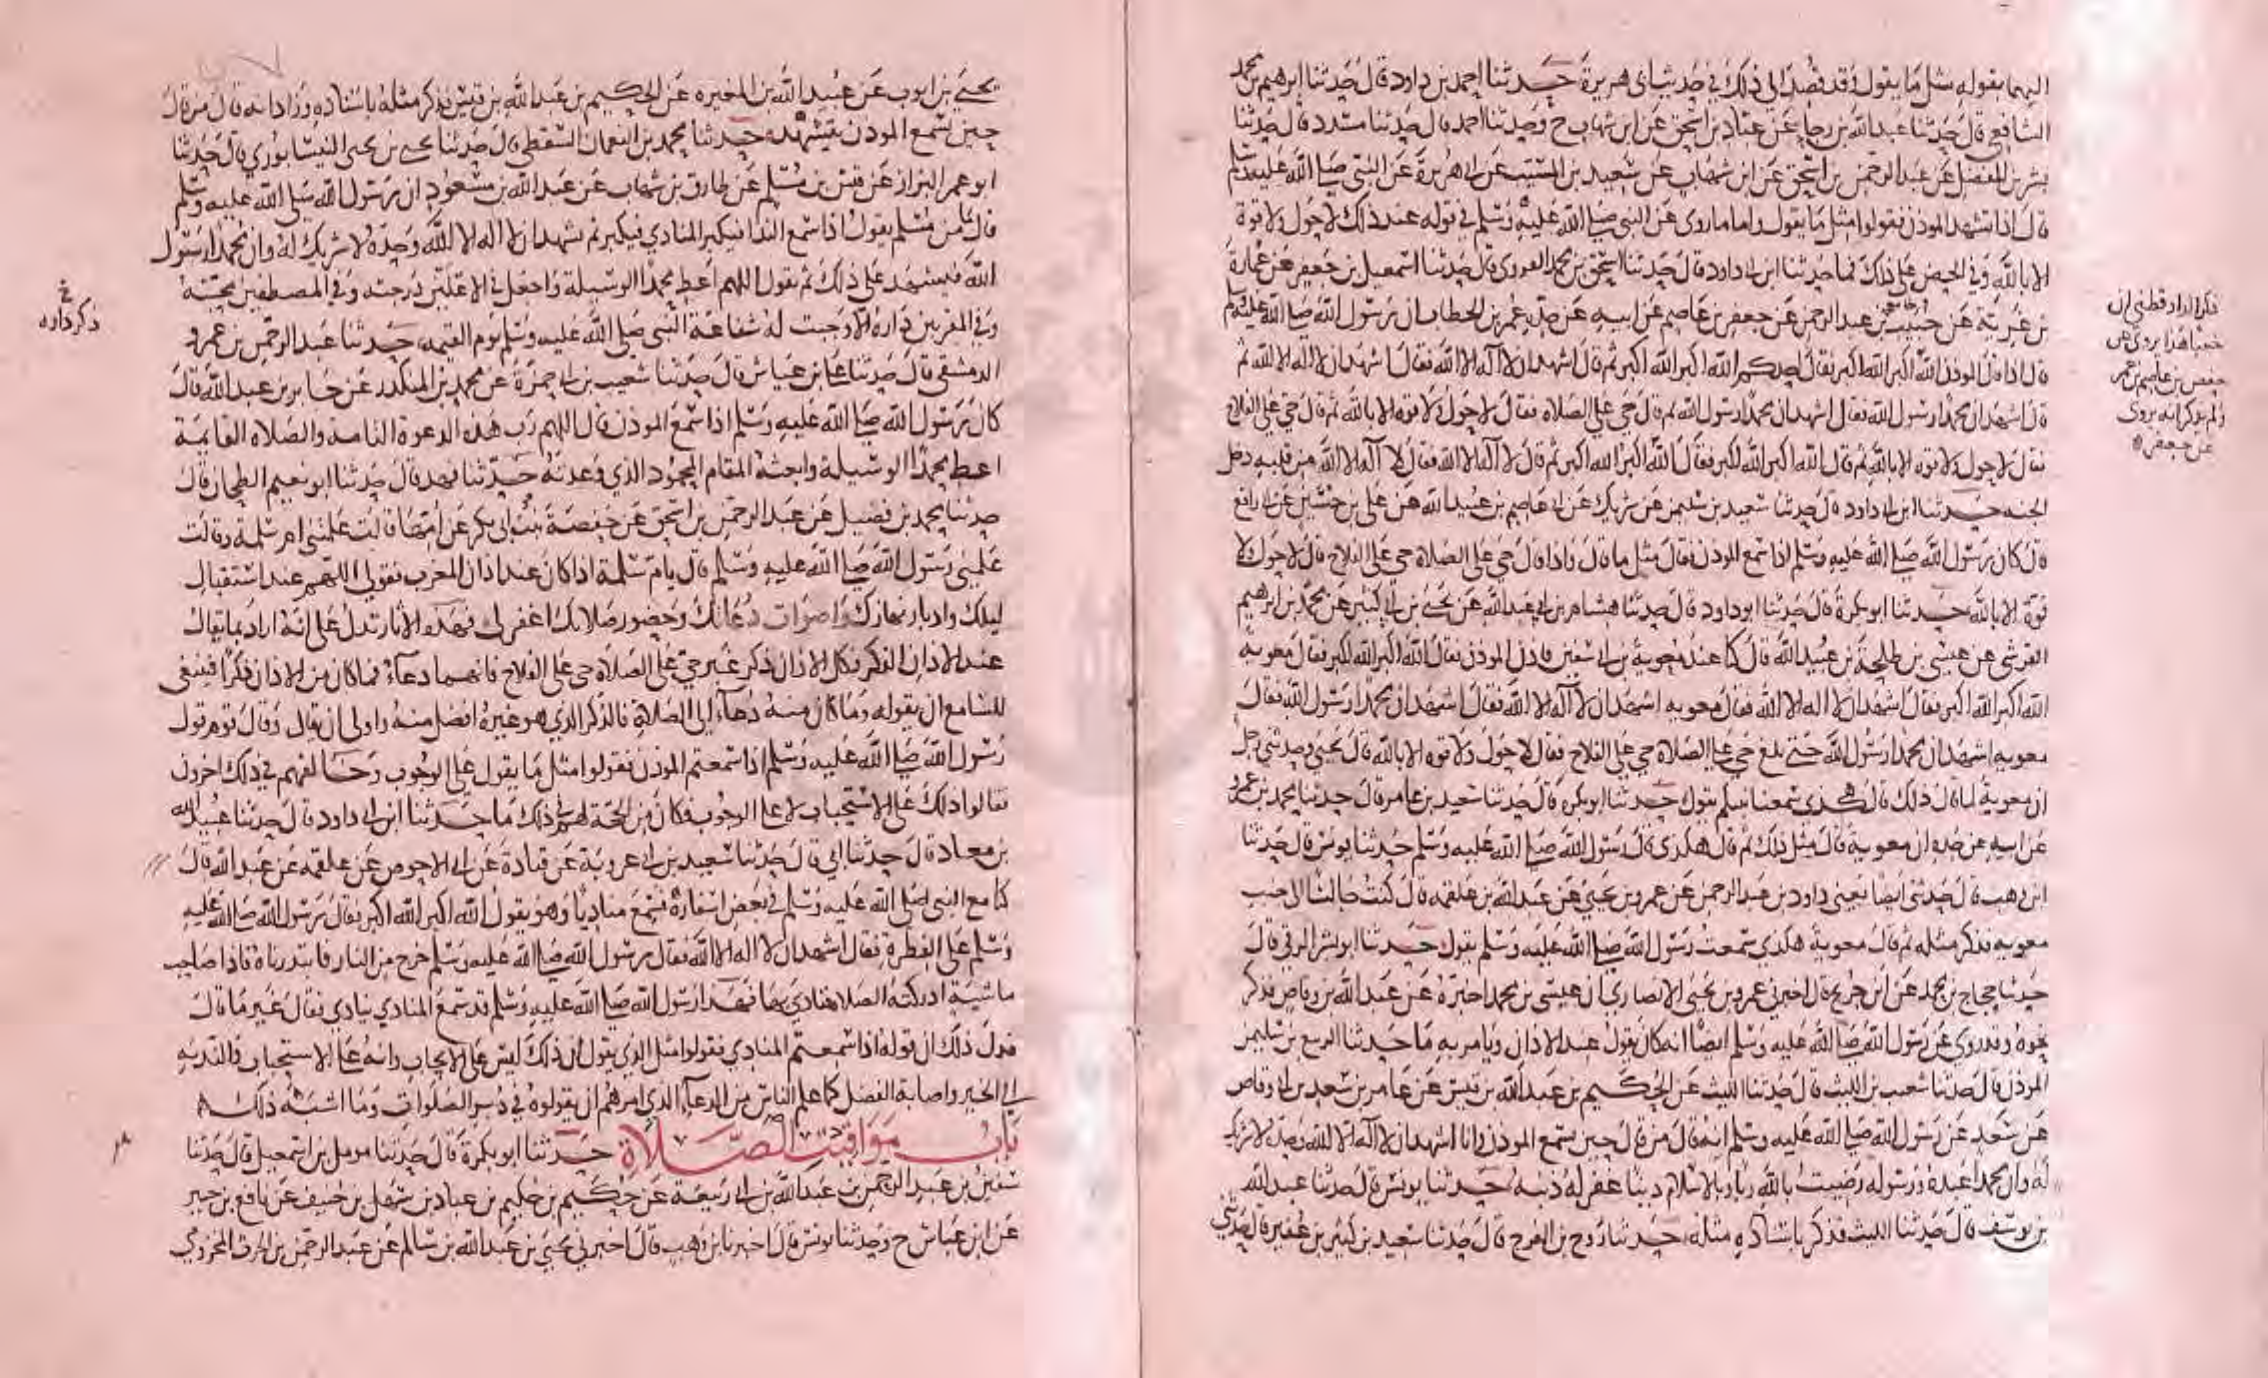 اليهما بقوله مثل ما يقول وقد فصد الى ذلك في حديث ابي هريرة حدثنا احمد بن داود قال حدثنا ابرهيم بن محمد
الشافعي قال حدثنا عبد الله بن رجا عن عباد بن اسحق عن ابن شهاب ح وحدثنا احمد قال حدثنا مسدد قال حدثنا
بشر بن المفضل عن عبد الرحمن بن اسحق عن ابن شهاب عن سعيد بن المسيب عن ابي هريرة عن النبي صلى الله عليه وسلم
قال اذا تشهد الموذن فقولوا مثل ما يقول واما ما روى عن النبي صلى الله عليه وسلم في قوله عند ذلك لا حول ولا قوة
الا بالله وفي الحض على ذلك فما حدثنا ابن ابي داود قال حدثنا اسحق بن محمد الفروي قال حدثنا اسمعيل بن جعفر عن عمارة
بن غزية عن خبيب بن عبد الرحمن عن جعفر بن عاصم عن ابيه عن جده عمر بن الخطاب ان رسول الله صلى الله عليه وسلم
قال اذا قال الموذن الله اكبر الله اكبر فقال احدكم الله اكبر الله اكبر ثم قال اشهد ان لا اله الا الله فقال اشهد ان لا اله الا الله ثم
قال اشهد ان محمدا رسول الله فقال اشهد ان محمدا رسول الله ثم قال حي على الصلاه فقال لا حول ولا قوه الا بالله ثم قال حي على الفلاح
فقال لا حول ولا قوه الا بالله ثم قال الله اكبر الله اكبر فقال الله اكبر الله اكبر ثم قال لا اله الا الله فقال لا اله الا الله من قلبه دخل
الجنه حدثنا ابن ابي داود قال حدثنا سعيد بن سليمن عن شريك عن عاصم بن عبيد الله عن علي بن حسين عن ابي رافع
قال كان رسول الله صلى الله عليه وسلم اذا سمع الموذن قال مثل ما قال واذا قال حي على الصلاة حي على الفلاح قال لا حول ولا
قوة الا بالله حدثنا ابو بكرة قال حدثنا ابو داود قال حدثنا هشام بن ابي عبد الله عن يحيى بن ابي كثير عن محمد بن ابرهيم
القرشي عن عيسى بن طلحة بن عبيد الله قال كنا عند معوية بن ابي سفين فاذن الموذن فقال الله اكبر الله اكبر فقال معوية
الله اكبر الله اكبر فقال اشهد ان لا اله الا الله فقال معويه اشهد ان لا اله الا الله فقال اشهد ان محمدا رسول الله فقال
معويه اشهد ان محمدا رسول الله حتى بلغ حي على الصلاة حي على الفلاح فقال لا حول ولا قوه الا بالله قال يحيى وحدثني رجل
ان معوية لما قال ذلك قال هكذى سمعنا نبيكم يقول حدثنا ابو بكره قال حدثنا سعيد بن عامر قال حدثنا محمد بن عمرو
عن ابيه عن جده ان معوية قال مثل ذلك ثم قال هكذى قال رسول الله صلى الله عليه وسلم حدثنا يونس قال حدثنا
ابن وهب قال حدثني ايضا يعني داود بن عبد الرحمن عن عمرو بن يحيى عن عبد الله بن علقمة قال كنت جالسا الى جنب
معويه فذكر مثله ثم قال معوية هكذى سمعت رسول الله صلى الله عليه وسلم يقول حدثنا ابو بشر الرقي قال
حدثنا حجاج بن محمد عن ابن جريج قال اخبرني عمرو بن يحيى الانصاري ان عيسى بن محمد اخبره عن عبد الله بن وقاص فذكر
نحوه وقد روي عن رسول الله صلى الله عليه وسلم ايضا انه كان يقول عند الاذان ويامر به ما حدثنا الربيع بن سليمن
الموذن قال حدثنا شعيب بن الليث قال حدثنا الليث عن الحكيم بن عبد الله بن قيس عن عامر بن سعد بن ابي وقاص
عن سعد عن رسول الله صلى الله عليه وسلم انه قال من قال حين يسمع الموذن وانا اشهد ان لا اله الا الله وحده لا شريك
له وان محمدا عبده ورسوله رضيت بالله ربا وبالاسلام دينا غفر له ذنبه حدثنا يونس قال حدثنا عبد الله
بن يوسف قال حدثنا الليث فذكر باسناده مثله حدثنا روح بن الفرج قال حدثنا سعيد بن كثير بن عفير قال حدثني
ذكر الدارقطني ان
خبيبا هذا يروي عن
حفص بن عاصم بن عمر
ولم يذكر انه يروى
عن جعفر
يحيى بن ايوب عن عبيد الله بن المغيره عن الحكيم بن عبد الله بن قيس فذكر مثله باسناده وزاد انه قال من قال
حين يسمع الموذن يتشهد حدثنا محمد بن النعمان السقطي قال حدثنا يحيى بن يحيى النيسابوري قال حدثنا
ابو عمر البزاز عن قيس بن مسلم عن طارق بن شهاب عن عبد الله بن مسعود ان رسول الله صلى الله عليه وسلم
قال ما من مسلم يقول اذا سمع الندا فيكبر المنادي فيكبر ثم يشهد ان لا اله الا الله وحده لا شريك له وان محمدا رسول
الله فيشهد على ذلك ثم يقول اللهم اعط محمدا الوسيلة واجعل في الاعلين درجته وفي المصطفين محبته
وفي المقربين داره الا وجبت له شفاعة النبي صلى الله عليه وسلم يوم القيمه حدثنا عبد الرحمن بن عمرو
الدمشقي قال حدثنا علي بن عياش قال حدثنا شعيب بن ابي حمزة عن محمد بن المنكدر عن جابر بن عبد الله قال
كان رسول الله صلى الله عليه وسلم اذا سمع الموذن قال اللهم رب هذه الدعوة التامة والصلاه القايمة
اعط محمدا الوسيلة وابعثه المقام المحمود الذي وعدته حدثنا فهد قال حدثنا ابو نعيم الطحان قال
حدثنا محمد بن فضيل عن عبد الرحمن بن اسحق عن حفصة بنت ابي بكر عن امها قالت علمتني ام سلمة وقالت
علمني رسول الله صلى الله عليه وسلم قال يا ام سلمة اذا كان عند اذان المغرب فقولي اللهم عند استقبال
ليلك وادبار نهارك واصوات دعاتك وحضور صلاتك اغفر لي فهذه الاثار تدل على انه اراد بما يقال
عند الاذان الذكر فكل الاذان ذكر غير حي على الصلاة حي على الفلاح فانهما دعاء فما كان من الاذان ذكرا فينبغي
للسامع ان يقوله وما كان منه دعاء الى الصلاة فالذكر الذي هو غيره افضل منه واولى ان يقال وقال قوم قول
رسول الله صلى الله عليه وسلم اذا سمعتم الموذن فقولوا مثل ما يقول على الوجوب وخالفهم في ذلك اخرون
فقالوا ذلك على الاستحباب لا على الوجوب فكان من الحجة لهم في ذلك ما حدثنا ابن ابي داود قال حدثنا عبيد الله
بن معاذ قال حدثنا ابي قال حدثنا سعيد بن ابي عروبة عن قتادة عن ابي الاحوص عن علقمه عن عبد الله قال
كنا مع النبي صلى الله عليه وسلم في بعض اسفاره فسمع مناديا وهو يقول الله اكبر الله اكبر فقال رسول الله صلى الله عليه
وسلم على الفطرة فقال اشهد ان لا اله الا الله فقال رسول الله صلى الله عليه وسلم خرج من النار فابتدرناه فاذا صاحب
ماشية ادركته الصلاة فنادى بها فهذا رسول الله صلى الله عليه وسلم قد سمع المنادي ينادي فقال غير ما قال
فدل ذلك ان قوله اذا سمعتم المنادي فقولوا مثل الذي يقول ان ذلك ليس على الايجاب وانه على الاستحباب والندبة
الى الخير واصابة الفضل كما علم الناس من الدعاء الذي امرهم ان يقولوه في دبر الصلوات وما اشبه ذلك
باب مواقيت الصلاة حدثنا ابو بكرة قال حدثنا مومل بن اسمعيل قال حدثنا
سفين بن عبد الرحمن بن عبد الله بن ابي ربيعة عن حكيم بن حكيم بن عباد بن سهل بن حنيف عن نافع بن جبير
عن ابن عباس ح وحدثنا يونس قال اخبرنا ابن وهب قال اخبرني يحيى بن عبد الله بن سالم عن عبد الرحمن بن الحرث المخزومي
خ
ذكر داره